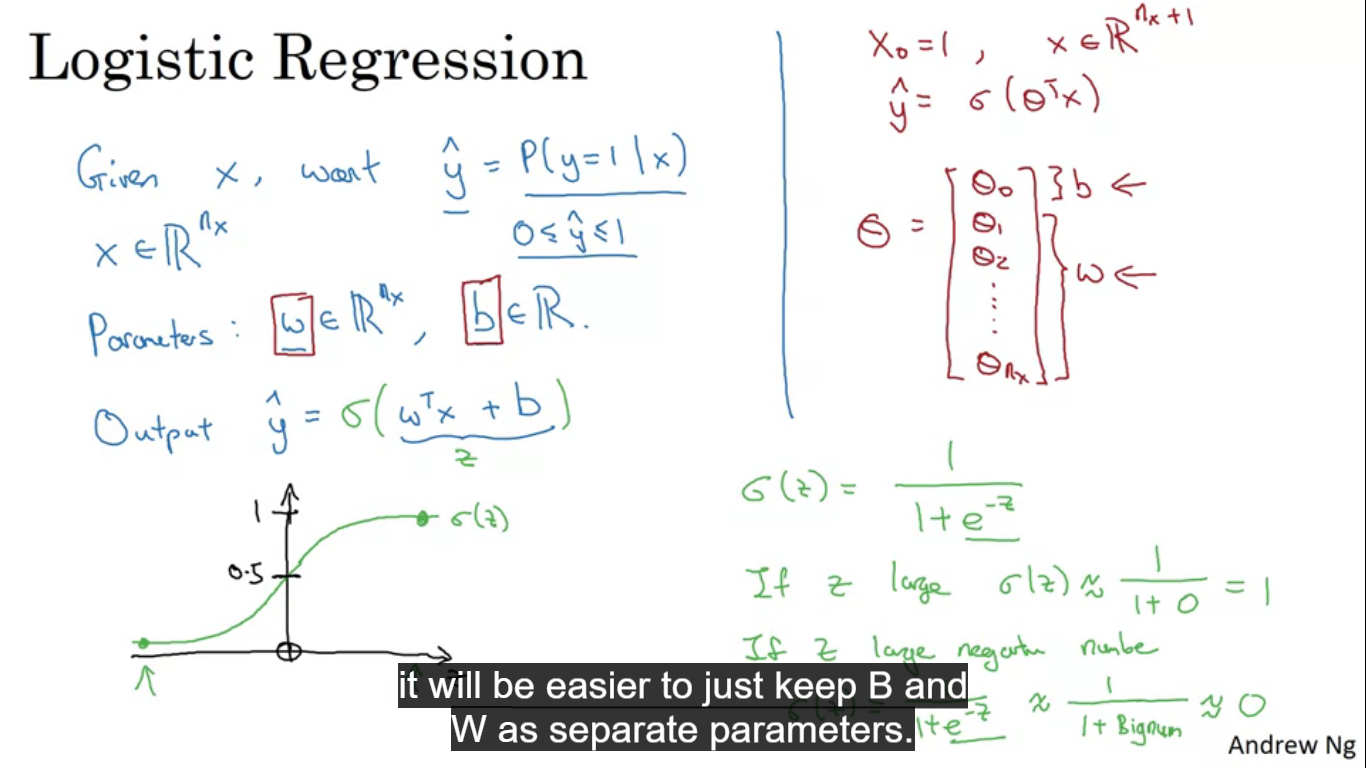 Logistic Regression
Given x, want ŷ = P(y=1|x)
x ∈ ℝ^nx
0 ≤ ŷ ≤ 1
Parameters: w ∈ ℝ^nx, b ∈ ℝ.
Output ŷ = σ(w^T x + b)
z
1
σ(z)
0.5
x₀ = 1, x ∈ ℝ^nx+1
ŷ = σ(θ^T x)
θ = [θ₀ θ₁ θ₂ ⋮ θnx]
} b ←
} w ←
σ(z) = 1 / (1 + e^-z)
If z large σ(z) ≈ 1 / (1 + 0) = 1
If z large negative number
1 + e^-z ≈ 1 / (1 + Bignum) ≈ 0
it will be easier to just keep B and
W as separate parameters.
Andrew Ng